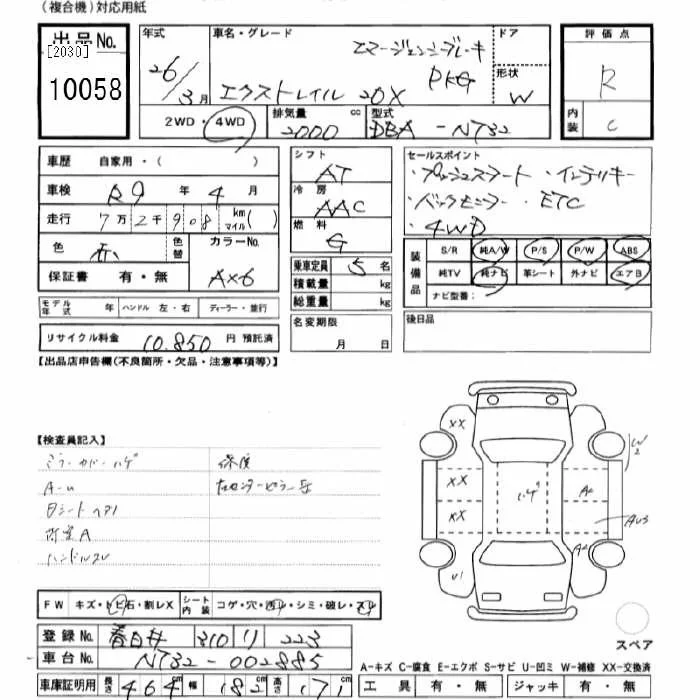 (複合機)対応用紙
出品No.
[2030]
10058
年式
26/3月
車名・グレード
エマージェンシーブレーキ
PKG
エクストレイル 20X
ドア
形状
W
評価点
R
内装
C
2WD・4WD
排気量
2000
cc
型式
DBA-NT32
車歴 自家用・( )
車検 R9年4月
走行 7万2千908km マイル( )
色 赤 色替 カラーNo. AX6
保証書 有・無
モデル年式 年 ハンドル 左・右 ディーラー・並行
リサイクル料金 10,850円 預託済
シフト AT
冷房 AAC
燃料 G
乗車定員 5名
積載量 kg
総重量 kg
名変期限
月 日
セールスポイント
・プッシュスタート ・インテリキー
・バックモニター ・ETC
・4WD
装備品
S/R 純A/W P/S P/W ABS
純TV 純ナビ 革シート 外ナビ エアB
ナビ型番:
後日品
【出品店申告欄(不良箇所・欠品・注意事項等)】
【検査員記入】
ミラーカバーハゲ 修復
A-u 右センターピラー
シートヘタリ
内室A
ハンドルスレ
XX
XX
XX
U1
ハゲ
W2
AU3
FW キズ・トビ石・割レX シート内装 コゲ・穴・汚レ・シミ・破レ・スレ
登録No. 春日井 310 リ 223
車台No. NT32-002885
車庫証明用 長さ 464 幅 182 高さ 171
スペア
A-キズ C-腐食 E-エクボ S-サビ U-凹ミ W-補修 XX-交換済
工具 有・無 ジャッキ 有・無